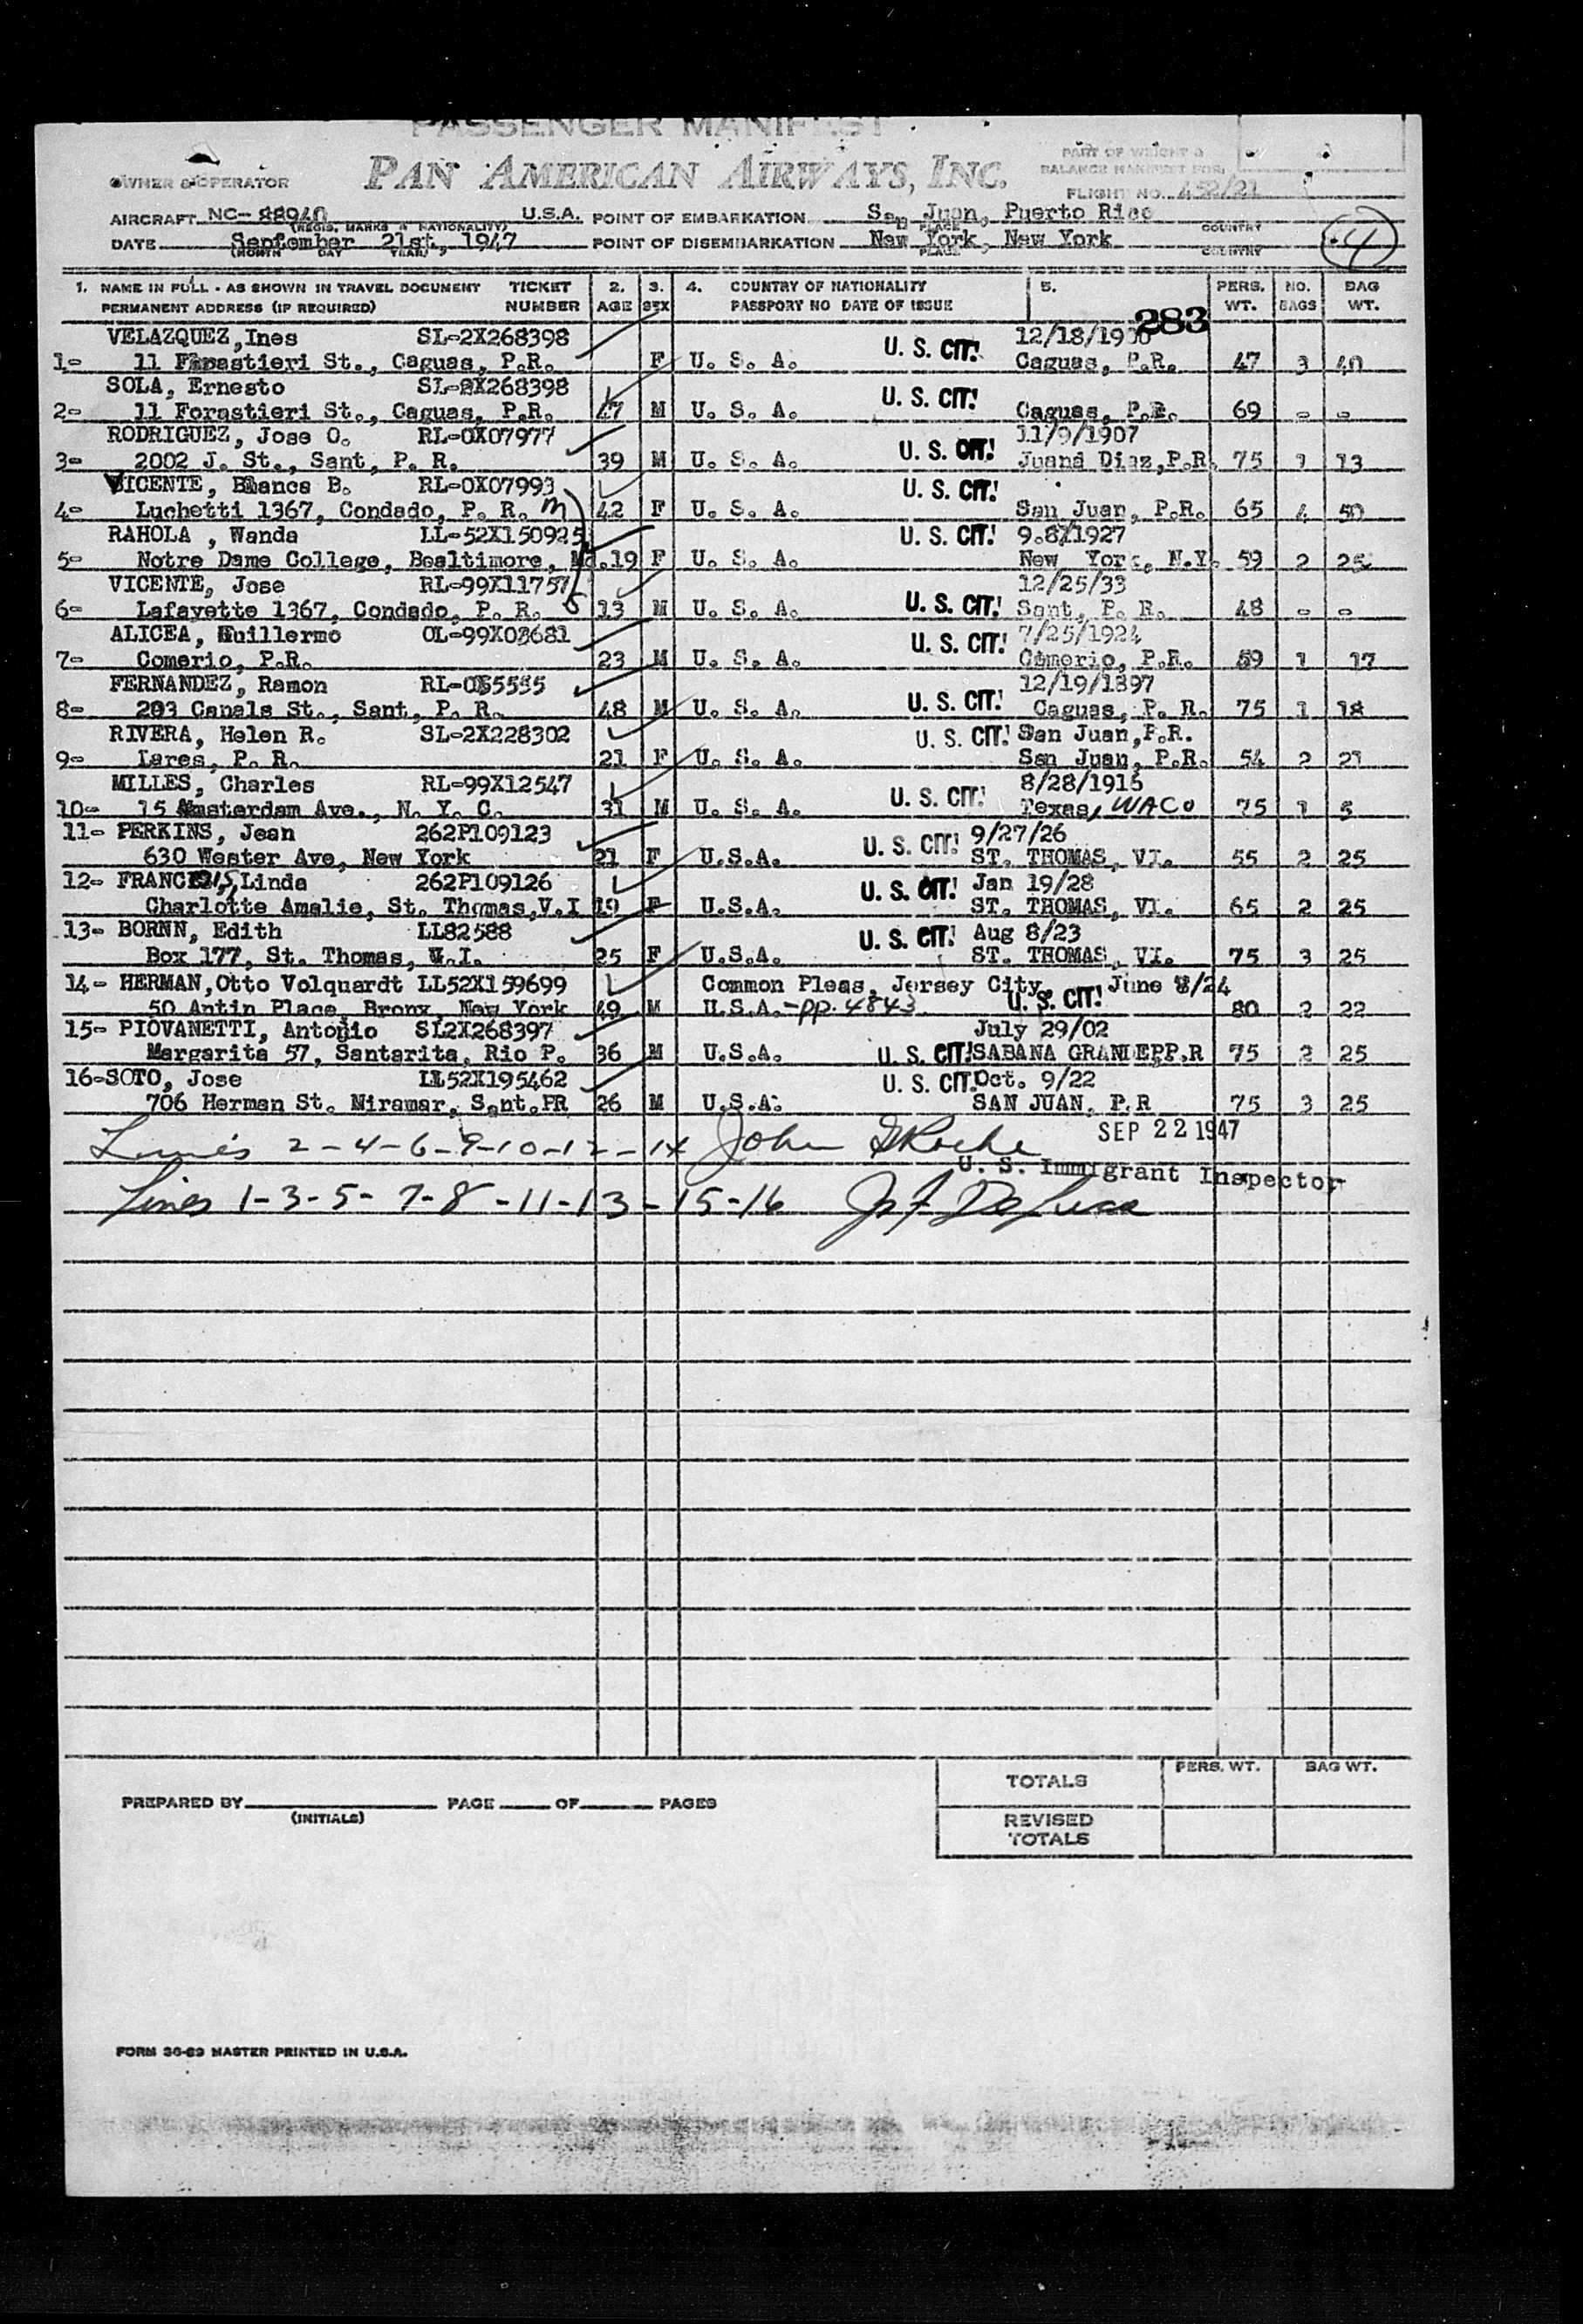 PASSENGER MANIFEST
OWNER & OPERATOR PAN AMERICAN AIRWAYS, INC. PART OF WEIGHT &
BALANCE MANIFEST FOR:
FLIGHT NO. 452/21
AIRCRAFT NC- 88940 U.S.A. POINT OF EMBARKATION San Juan, Puerto Rico
(REGIS. MARKS & NATIONALITY) PLACE COUNTRY
DATE September 21st, 1947 POINT OF DISEMBARKATION New York, New York 4
(MONTH DAY YEAR) PLACE COUNTRY
1. NAME IN FULL - AS SHOWN IN TRAVEL DOCUMENT TICKET 2. 3. 4. COUNTRY OF NATIONALITY 5. PERS. NO. BAG
PERMANENT ADDRESS (IF REQUIRED) NUMBER AGE SEX PASSPORT NO DATE OF ISSUE WT. BAGS WT.
283
VELAZQUEZ,Ines SL-2X268398 U. S. CIT. 12/18/1900
1- 11 Forastieri St., Caguas, P.R. F U. S. A. Caguas, P.R. 47 3 40
SOLA, Ernesto SL-2X268398 U. S. CIT.
2- 11 Forastieri St., Caguas, P.R. 47 M U. S. A. Caguas, P.R. 69 - -
RODRIGUEZ, Jose O. RL-0X07977 11/9/1907
3- 2002 J. St., Sant, P. R. 39 M U. S. A. U. S. CIT. Juana Diaz,P.R. 75 1 13
VICENTE, Blanca B. RL-0X07993 U. S. CIT.
4- Luchetti 1367, Condado, P. R. m 42 F U. S. A. San Juan, P.R. 65 4 50
RAHOLA , Wanda LL-52X150925 U. S. CIT. 9.8/1927
5- Notre Dame College, Bealtimore, Md.19 F U. S. A. New York, N.Y. 59 2 25
VICENTE, Jose RL-99X11757 12/25/33
6- Lafayette 1367, Condado, P. R. S 13 M U. S. A. U. S. CIT. Sant, P. R. 48 - -
ALICEA, Guillermo OL-99X03681 U. S. CIT. 7/25/1924
7- Comerio, P.R. 23 M U. S. A. Comerio, P.R. 59 1 17
FERNANDEZ, Ramon 12/19/1897
8- 203 Canals St., Sant, P. R. 48 M U. S. A. U. S. CIT. Caguas, P. R. 75 1 18
RIVERA, Helen R. SL-2X228302 U. S. CIT. San Juan,P.R.
9- Lares, P. R. 21 F U. S. A. San Juan, P.R. 54 2 21
MILLES, Charles RL-99X12547 8/28/1916
10- 15 Amsterdam Ave., N. Y. C. 31 M U. S. A. U. S. CIT. Texas, WACO 75 1 5
11- PERKINS, Jean 262P109123 U. S. CIT. 9/27/26
630 Wester Ave, New York 21 F U.S.A. ST. THOMAS, VI. 55 2 25
12- FRANCIS, Linda 262P109126 U. S. CIT. Jan 19/28
Charlotte Amalie, St. Thomas,V.I 19 F U.S.A. ST. THOMAS, VI. 65 2 25
13- BORNN, Edith LL82588 U. S. CIT. Aug 8/23
Box 177, St. Thomas, W.I. 25 F U.S.A. ST. THOMAS, VI. 75 3 25
14- HERMAN,Otto Volquardt LL52X159699 Common Pleas, Jersey City, June 8/24
50 Antin Place, Bronx, New York 49 M U.S.A. -pp. 4843 U. S. CIT. 80 2 22
15- PIOVANETTI, Antonio SL2X268397 July 29/02
Margarita 57, Santarita, Rio P. 36 M U.S.A. U. S. CIT. SABANA GRANDE P.R 75 2 25
16-SOTO, Jose LL52X195462 U. S. CIT. Oct. 9/22
706 Herman St. Miramar, Sant.PR 26 M U.S.A. SAN JUAN, P.R 75 3 25
Lines 2-4-6-9-10-12-14 John SEP 22 1947
U. S. Immigrant Inspector
Lines 1-3-5-7-8-11-13-15-16
PERS. WT. BAG WT.
TOTALS
PREPARED BY PAGE OF PAGES
(INITIALS)
REVISED
TOTALS
FORM 36-89 MASTER PRINTED IN U.S.A.